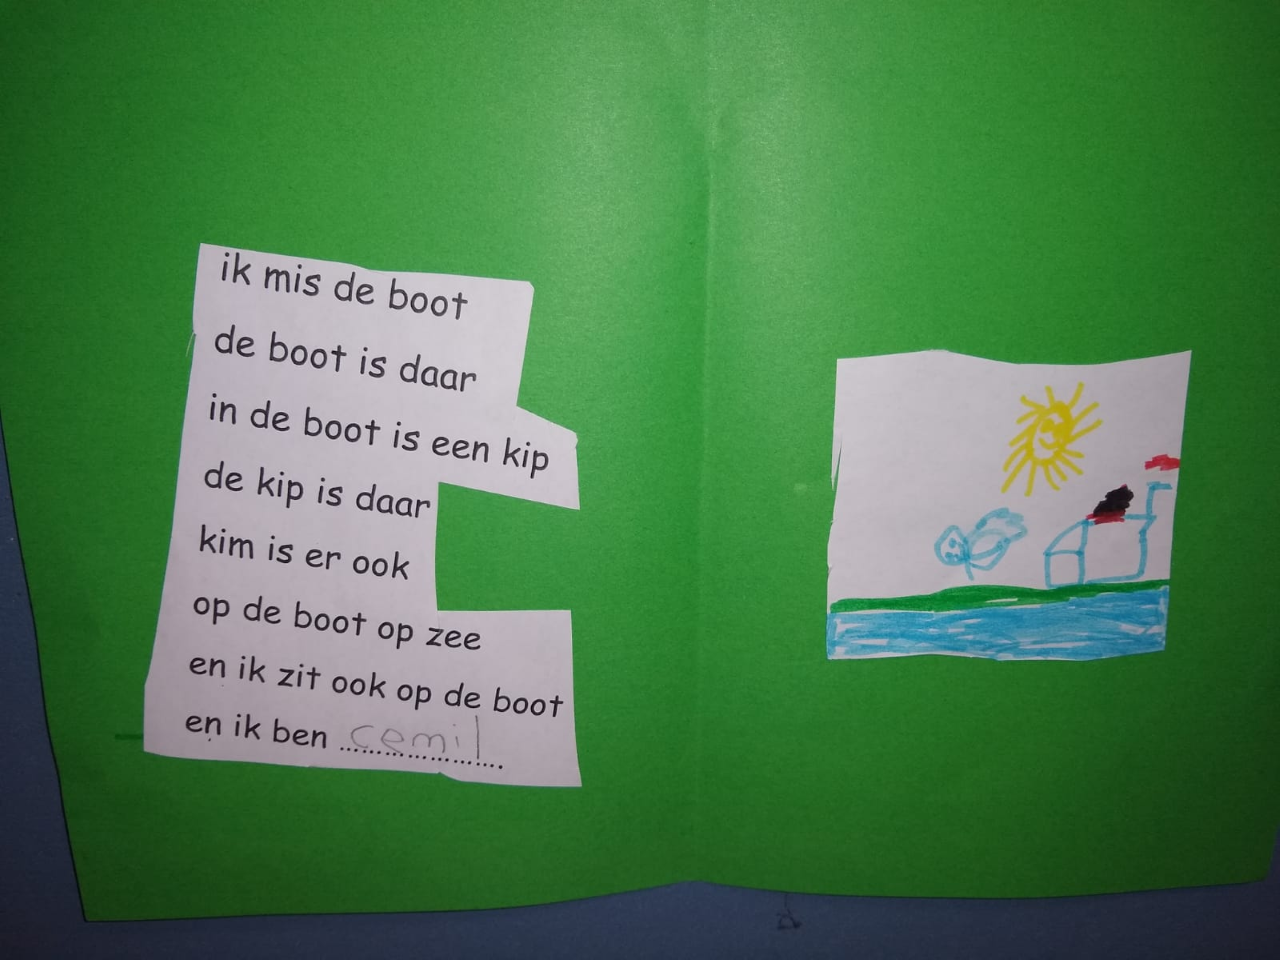 ik mis de boot
de boot is daar
in de boot is een kip
de kip is daar
kim is er ook
op de boot op zee
en ik zit ook op de boot
en ik ben cemil